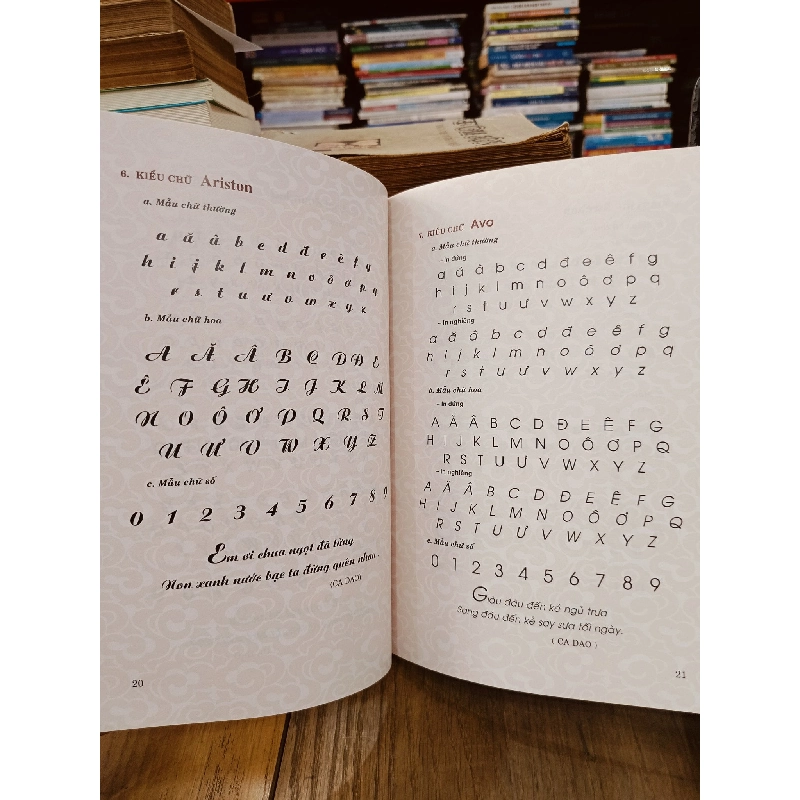 6. KIỂU CHỮ Ariston
a. Mẫu chữ thường
a ă â b c d đ e ê f g
h i j k l m n o ô ơ p q
r s t u ư v w x y z
b. Mẫu chữ hoa
A Ă Â B C D Đ E
Ê F G H I J K L M
N O Ô Ơ P Q R S T
U Ư V W X Y Z
c. Mẫu chữ số
0 1 2 3 4 5 6 7 8 9
Em ơi chua ngọt đã từng
Non xanh nước bạc ta đừng quên nhau.
(CA DAO)
20
KIỂU CHỮ Avo
a. Mẫu chữ thường
- In đứng
a ă â b c d đ e ê f g
h i j k l m n o ô ơ p q
r s t u ư v w x y z
- In nghiêng
a ă â b c d đ e ê f g
h i j k l m n o ô ơ p q
r s t u ư v w x y z
b. Mẫu chữ hoa
- In đứng
A Ă Â B C D Đ E Ê F G
H I J K L M N O Ô Ơ P Q
R S T U Ư V W X Y Z
- In nghiêng
A Ă Â B C D Đ E Ê F G
H I J K L M N O Ô Ơ P Q
R S T U Ư V W X Y Z
c. Mẫu chữ số
0 1 2 3 4 5 6 7 8 9
Giàu đâu đến kẻ ngủ trưa
Sang đâu đến kẻ say sưa tối ngày.
( CA DAO )
21